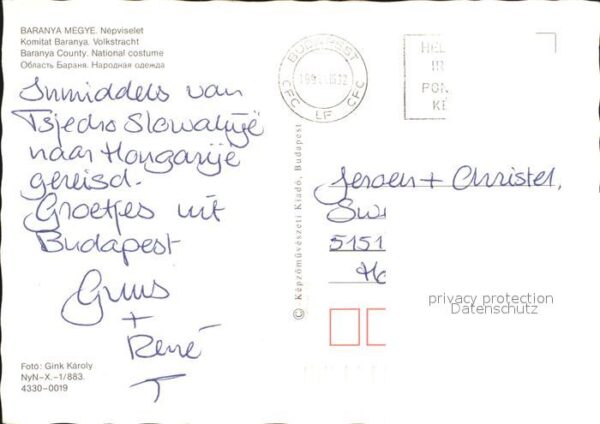 BARANYA MEGYE. Népviselet
Komitat Baranya. Volkstracht
Baranya County. National costume
Область Бараня. Народная одежда
Inmiddels van
Tsjecho Slowakije
naar Hongarije
gereisd.
Groetjes uit
Budapest
Guus
+
René
Fotó: Gink Károly
NyN–X.–1/883.
4330–0019
BUDAPEST
CFC LF CFC
HEL
PON
© Képzőművészeti Kiadó, Budapest
Jeroen + Christel,
5151
privacy protection
Datenschutz